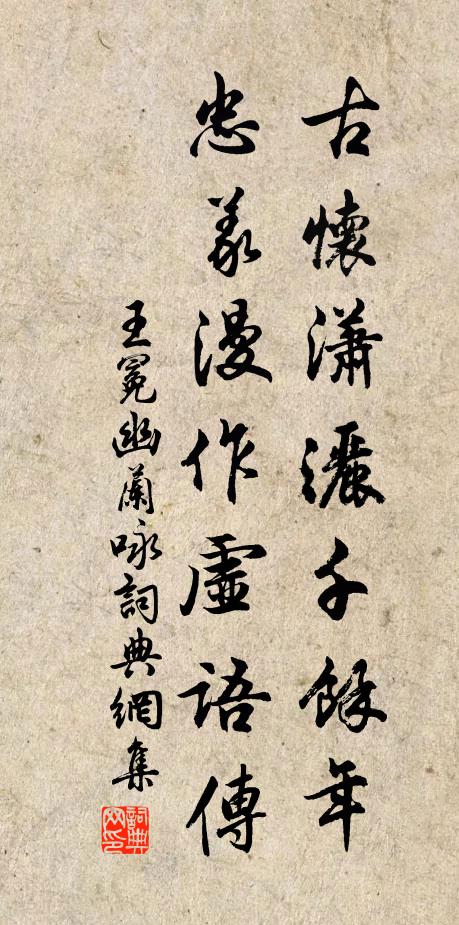 古懷瀟灑千餘年
忠義漫作虛語傳
王冕幽蘭咏詞典網集
詞典网印